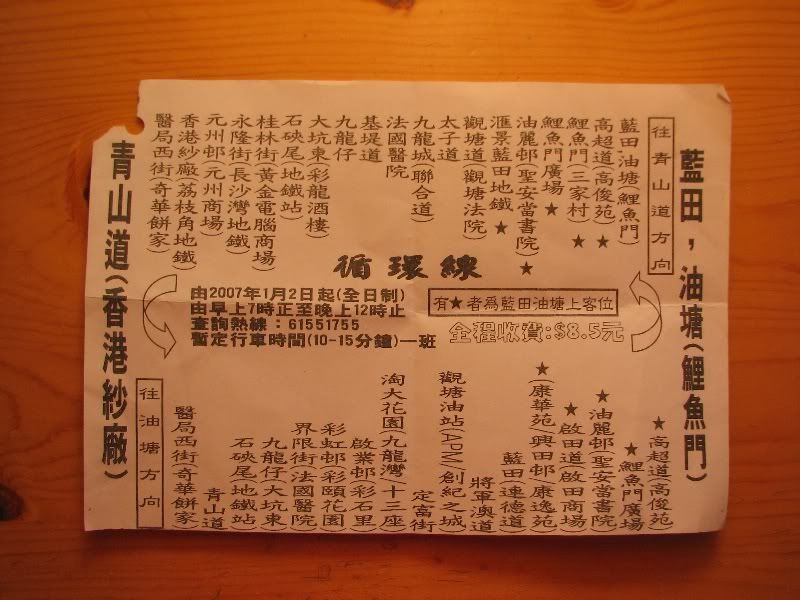 藍田，油塘(鯉魚門)
往青山道方向
藍田油塘(鯉魚門)
高超道(高俊苑)★
鯉魚門三家村★
鯉魚門廣場★
油麗邨聖安當書院★
滙景藍田地鐵★
觀塘道觀塘法院)
太子道
九龍城(聯合道)
法國醫院
基堤道
九龍仔
大坑東(彩龍酒樓)
石硤尾(地鐵站)
桂林街(黃金電腦商場)
永隆街(長沙灣地鐵)
元州邨元州商場)
香港紗廠荔枝角地鐵)
醫局西街(奇華餅家)
青山道(香港紗廠)
循環線
由2007年1月2日起(全日制)
由早上7時正至晚上12時止
查詢熱線：61551755
暫定行車時間(10-15分鐘)一班
有★者為藍田油塘上客位
全程收費:$8.5元
★高超道(高俊苑)
★鯉魚門廣場
★油麗邨聖安當書院
★啟田道(啟田商場)
★(康華苑)興田邨/康逸苑)
藍田連德道
將軍澳道
觀塘油站(APM/創紀之城)
定富街
淘大花園(九龍灣/十三座)
啟業邨彩石里
彩虹邨/彩頤花園
界限街(法國醫院)
九龍仔大坑東
石硤尾(地鐵站)
青山道
醫局西街(奇華餅家)
往油塘方向